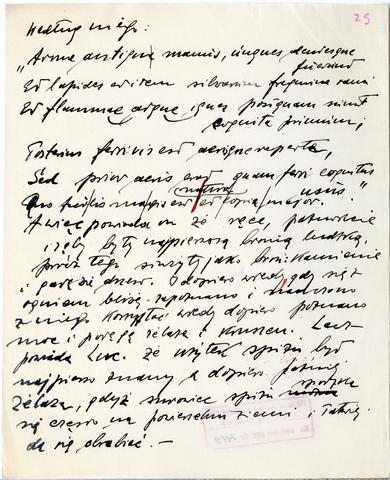 Według niego:
25
„Arma antiqua manus, ungues dentesque
fuerunt
Et lapides et item silvarum fragmina rami
Et flammae atque ignes postquam sunt
cognita primum;
Posterius ferri vis est aerisque reperta,
Sed prior aeris erat quam ferri cognitus
usus”
Quo facilis magis est natura et copia major.
A więc powiada on że ręce, paznokcie
i zęby były najpierwszą bronią ludzką,
prócz tego służyły jako broń kamienie
i gałęzie drzew. I dopiero wtedy gdy się z
ogniem bliżej zapoznano i nauczono
z niego korzystać wtedy dopiero poznano
moc i potęgę żelaza i kruszcu.
powiada Luc. że użytek spiżu był
najpierw znany a dopiero później
żelaza, gdyż surowiec spiżu spotyka
się często na powierzchni ziemi i łatwiej
da się obrabiać. —